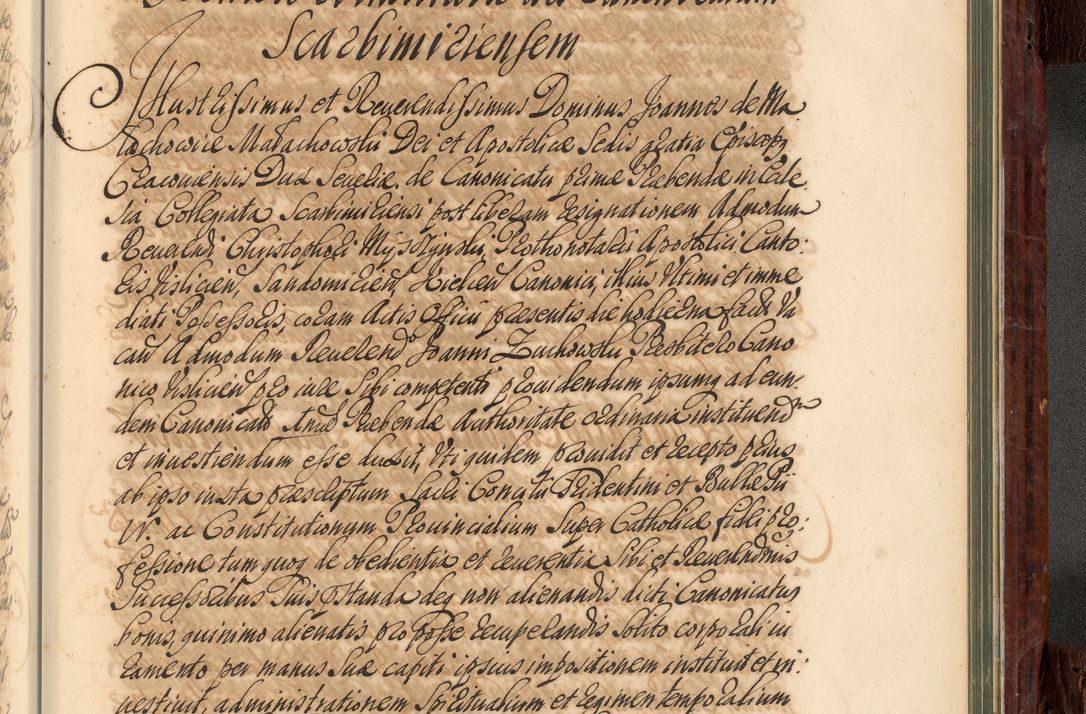 Scarbimiriensem
Illustrissimus et Reverendissimus Dominus Joannes de Ma
lachowice Małachowski Dei et Apostolicæ Sedis gratia Episcop9
Cracoviensis Dux Severiæ. de Canonicatu primæ Præbendæ in Eccle
sia Collegiata Scarbimiriensi post liberam resignationem Admodum
Reverendi Christophori Myszynski, Prothonotarii Apostolici Canto:
ris Vislicien, Sandomirien, Kielcen Canonici, illius Ultimi et imme
diati Possessoris, coram Actis Officii præsentis die hodierna factā va
can Admodum Reverendo Joanni Zuchowski Presbitero Cano
nico Vislicien pro iure Sibi competenti providendum ipsumq ad eun:
dem Canonicatū Præbendæ Authoritate ordinaria instituend
et investiendum esse duxit, Uti quidem providit et recepto prius
ab ipso iuxta præscriptum Sacri Concilii Tridentini et Bullæ Pii
IV. ac Constitutionum Provincialium Super Catholicæ fidei pro:
fessione tum quoq de obedientia et reverentia Sibi et Reverendmis
Successoribus Suis præstanda deq non alienandis dicti Canonicatus
bonis, quinimo alienatis pro posse recuperandis Solito corporali iu
ramento per manus Suæ capiti ipsius impositionem instituit et in:
vestivit, administrationem Spiritualium et regimen temporalium